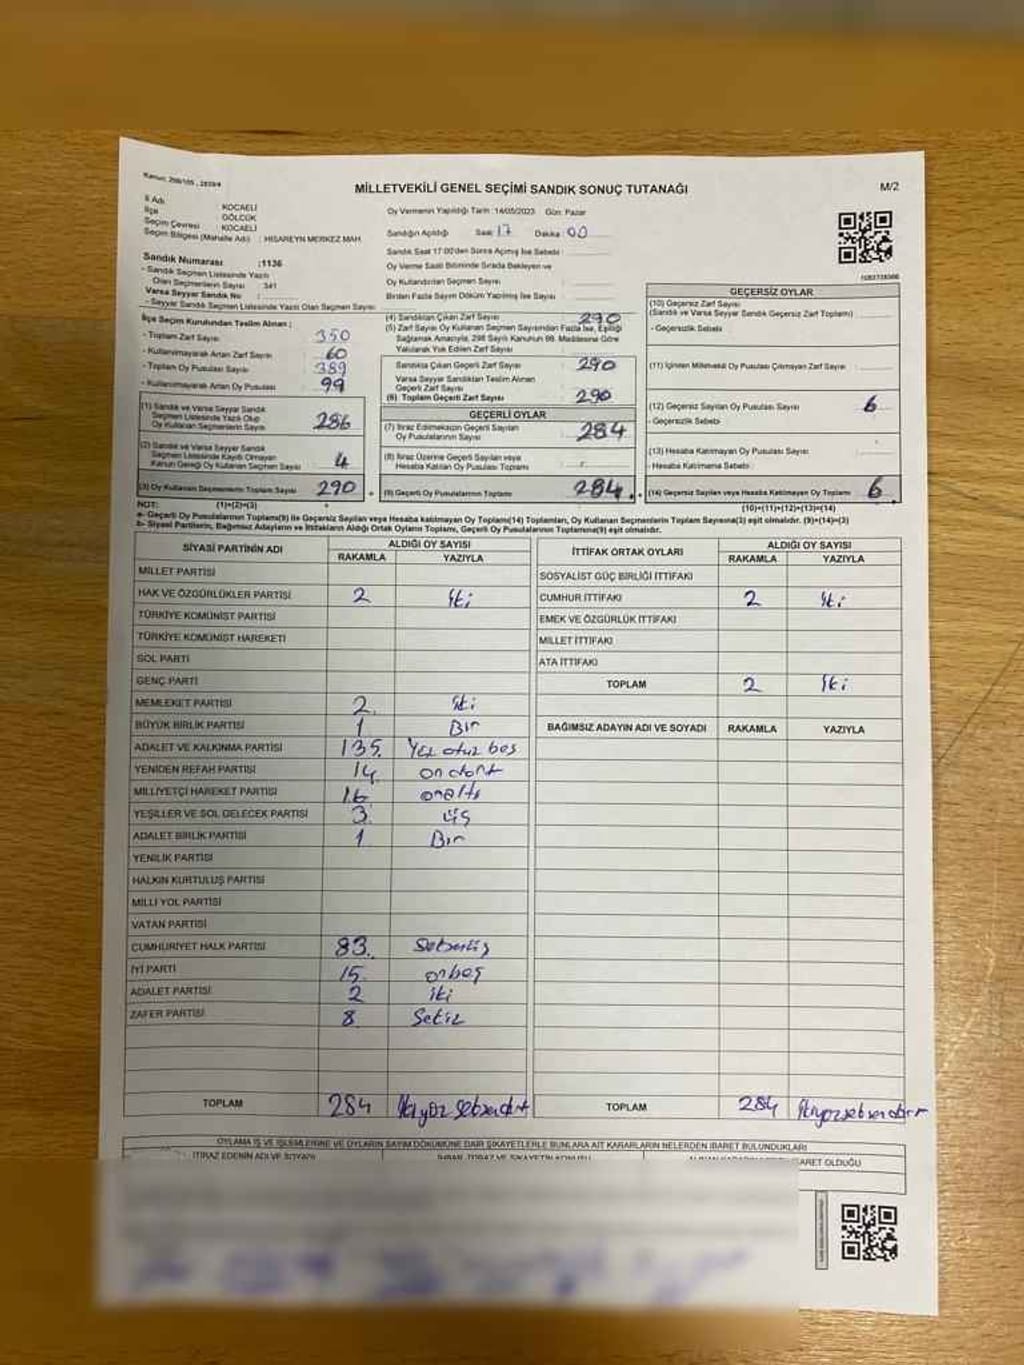 Kanun: 298/105, 2839/4
MİLLETVEKİLİ GENEL SEÇİMİ SANDIK SONUÇ TUTANAĞI
M/2
İl Adı : KOCAELİ
İlçe : GÖLCÜK
Seçim Çevresi : KOCAELİ
Seçim Bölgesi (Mahalle Adı) : HISAREYN MERKEZ MAH.
Sandık Numarası :1136
- Sandık Seçmen Listesinde Yazılı
Olan Seçmenlerin Sayısı : 341
Varsa Seyyar Sandık No :
- Seyyar Sandık Seçmen Listesinde Yazılı Olan Seçmen Sayısı
Oy Vermenin Yapıldığı Tarih : 14/05/2023 Gün: Pazar
Sandığın Açıldığı Saat : 17 Dakika : 00
Sandık Saat 17:00'den Sonra Açılmış İse Sebebi :
Oy Verme Saati Bitiminde Sırada Bekleyen ve
Oy Kullandırılan Seçmen Sayısı :
Birden Fazla Sayım Döküm Yapılmış İse Sayısı :
İlçe Seçim Kurulundan Teslim Alınan :
- Toplam Zarf Sayısı : 350
- Kullanılmayarak Artan Zarf Sayısı : 60
- Toplam Oy Pusulası Sayısı : 389
- Kullanılmayarak Artan Oy Pusulası : 99
(1) Sandık ve Varsa Seyyar Sandık
Seçmen Listesinde Yazılı Olup
Oy Kullanan Seçmenlerin Sayısı 286
(2) Sandık ve Varsa Seyyar Sandık
Seçmen Listesinde Kayıtlı Olmayan
Kanun Gereği Oy Kullanan Seçmen Sayısı 4
(3) Oy Kullanan Seçmenlerin Toplam Sayısı 290
(1)+(2)=(3)
(4) Sandıktan Çıkan Zarf Sayısı : 290
(5) Zarf Sayısı Oy Kullanan Seçmen Sayısından Fazla İse, Eşitliği
Sağlamak Amacıyla, 298 Sayılı Kanunun 98. Maddesine Göre
Yakılarak Yok Edilen Zarf Sayısı :
Sandıkta Çıkan Geçerli Zarf Sayısı : 290
Varsa Seyyar Sandıktan Teslim Alınan
Geçerli Zarf Sayısı :
(6) Toplam Geçerli Zarf Sayısı : 290
GEÇERLİ OYLAR
(7) İtiraz Edilmeksizin Geçerli Sayılan
Oy Pusulalarının Sayısı : 284
(8) İtiraz Üzerine Geçerli Sayılan veya
Hesaba Katılan Oy Pusulası Toplamı :
(9) Geçerli Oy Pusulalarının Toplamı 284
GEÇERSİZ OYLAR
(10) Geçersiz Zarf Sayısı
(Sandık ve Varsa Seyyar Sandık Geçersiz Zarf Toplamı)
- Geçersizlik Sebebi
(11) İçinden Milletvekili Oy Pusulası Çıkmayan Zarf Sayısı :
(12) Geçersiz Sayılan Oy Pusulası Sayısı : 6
- Geçersizlik Sebebi :
(13) Hesaba Katılmayan Oy Pusulası Sayısı :
- Hesaba Katılmama Sebebi :
(14) Geçersiz Sayılan veya Hesaba Katılmayan Oy Toplamı 6
(10)+(11)+(12)+(13)=(14)
NOT:
a- Geçerli Oy Pusulalarının Toplamı(9) ile Geçersiz Sayılan veya Hesaba katılmayan Oy Toplamı(14) Toplamları, Oy Kullanan Seçmenlerin Toplam Sayısına(3) eşit olmalıdır. (9)+(14)=(3)
b- Siyasi Partilerin, Bağımsız Adayların ve İttifakların Aldığı Ortak Oyların Toplamı, Geçerli Oy Pusulalarının Toplamına(9) eşit olmalıdır.
SİYASİ PARTİNİN ADI ALDIĞI OY SAYISI
RAKAMLA YAZIYLA
MİLLET PARTİSİ
HAK VE ÖZGÜRLÜKLER PARTİSİ 2 iki
TÜRKİYE KOMÜNİST PARTİSİ
TÜRKİYE KOMÜNİST HAREKETİ
SOL PARTİ
GENÇ PARTİ
MEMLEKET PARTİSİ 2 iki
BÜYÜK BİRLİK PARTİSİ 1 Bir
ADALET VE KALKINMA PARTİSİ 135 Yüz otuz beş
YENİDEN REFAH PARTİSİ 14 on dört
MİLLİYETÇİ HAREKET PARTİSİ 16 onaltı
YEŞİLLER VE SOL GELECEK PARTİSİ 3 üç
ADALET BİRLİK PARTİSİ 1 Bir
YENİLİK PARTİSİ
HALKIN KURTULUŞ PARTİSİ
MİLLİ YOL PARTİSİ
VATAN PARTİSİ
CUMHURİYET HALK PARTİSİ 83
İYİ PARTİ 15 onbeş
ADALET PARTİSİ 2 iki
ZAFER PARTİSİ 8 Sekiz
TOPLAM 284 ikiyüz seksendört
İTTİFAK ORTAK OYLARI ALDIĞI OY SAYISI
RAKAMLA YAZIYLA
SOSYALİST GÜÇ BİRLİĞİ İTTİFAKI
CUMHUR İTTİFAKI 2 iki
EMEK VE ÖZGÜRLÜK İTTİFAKI
MİLLET İTTİFAKI
ATA İTTİFAKI
TOPLAM 2 iki
BAĞIMSIZ ADAYIN ADI VE SOYADI RAKAMLA YAZIYLA
TOPLAM 284 ikiyüzseksendört
OYLAMA İŞ VE İŞLEMLERİNE VE OYLARIN SAYIM DÖKÜMÜNE DAİR ŞİKAYETLERLE BUNLARA AİT KARARLARIN NELERDEN İBARET BULUNDUKLARI
İTİRAZ EDENİN ADI VE SOYADI İHBAR, İTİRAZ VE ŞİKAYETİN KONUSU